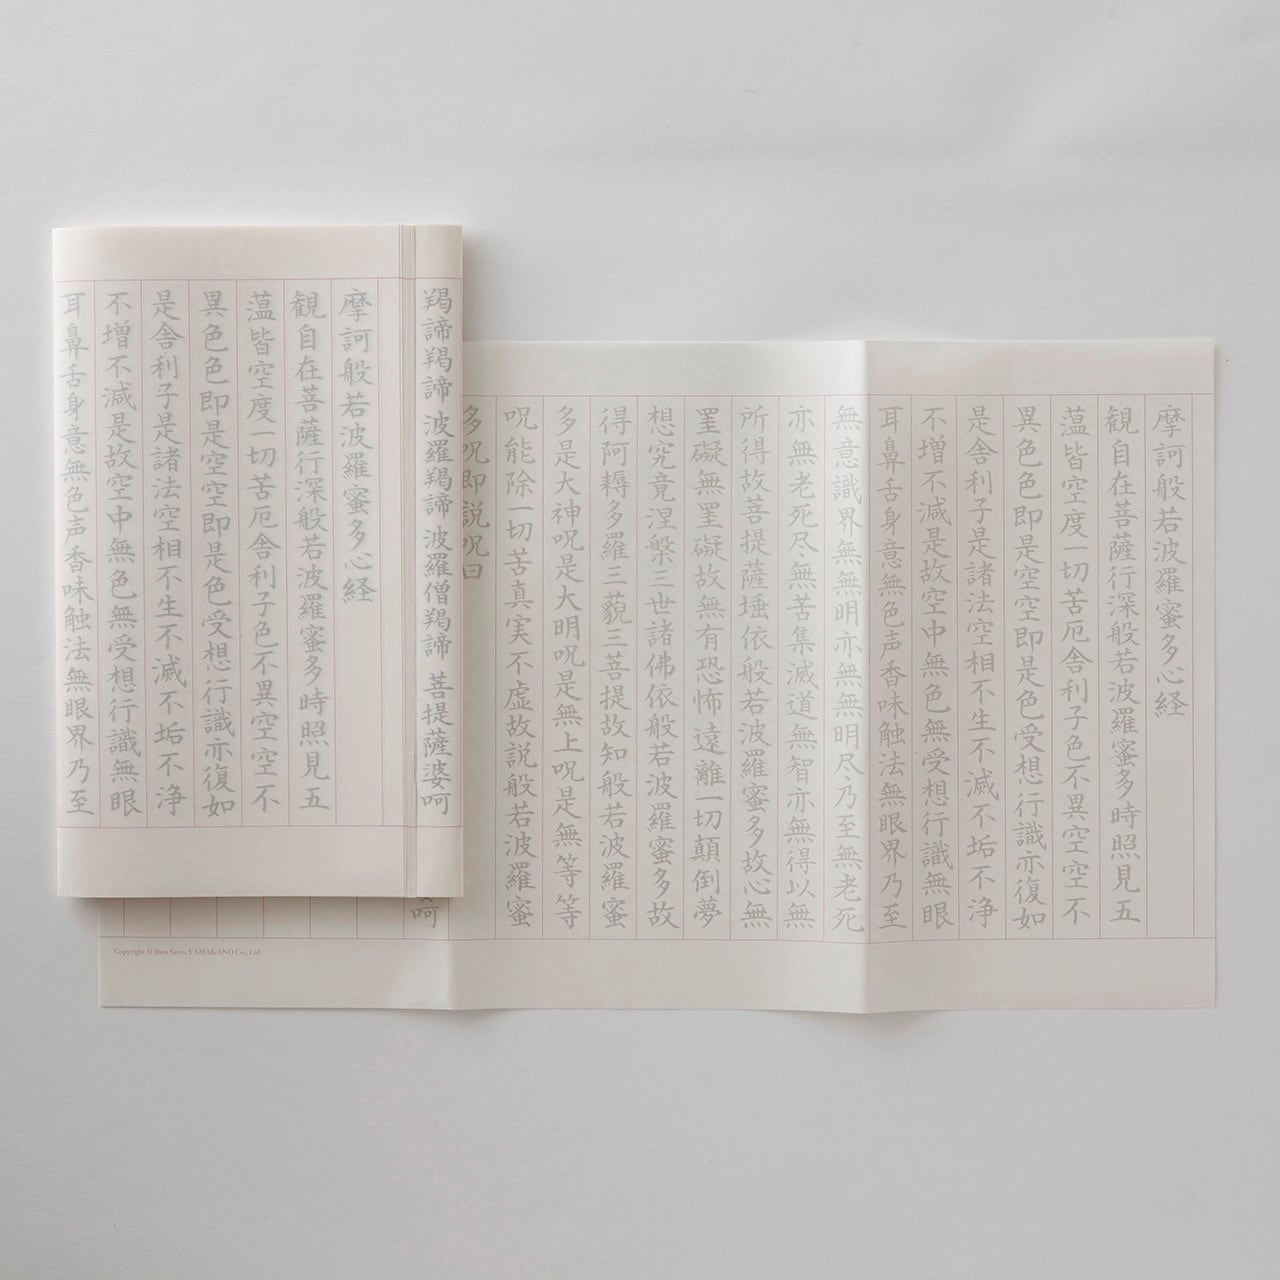 羯諦羯諦 波羅羯諦 波羅僧羯諦 菩提薩婆呵
摩訶般若波羅蜜多心経
観自在菩薩行深般若波羅蜜多時照見五
薀皆空度一切苦厄舎利子色不異空空不
異色色即是空空即是色受想行識亦復如
是舎利子是諸法空相不生不滅不垢不浄
不増不減是故空中無色無受想行識無眼
耳鼻舌身意無色声香味触法無眼界乃至
摩訶般若波羅蜜多心経
観自在菩薩行深般若波羅蜜多時照見五
薀皆空度一切苦厄舎利子色不異空空不
異色色即是空空即是色受想行識亦復如
是舎利子是諸法空相不生不滅不垢不浄
不増不減是故空中無色無受想行識無眼
耳鼻舌身意無色声香味触法無眼界乃至
無意識界無無明亦無無明尽乃至無老死
亦無老死尽無苦集滅道無智亦無得以無
所得故菩提薩埵依般若波羅蜜多故心無
罣礙無罣礙故無有恐怖遠離一切顛倒夢
想究竟涅槃三世諸佛依般若波羅蜜多故
得阿耨多羅三藐三菩提故知般若波羅蜜
多是大神呪是大明呪是無上呪是無等等
呪能除一切苦真実不虚故説般若波羅蜜
多呪即説呪曰
呵
Copyright © Ihen Sama, YAMAKANO Co., Ltd